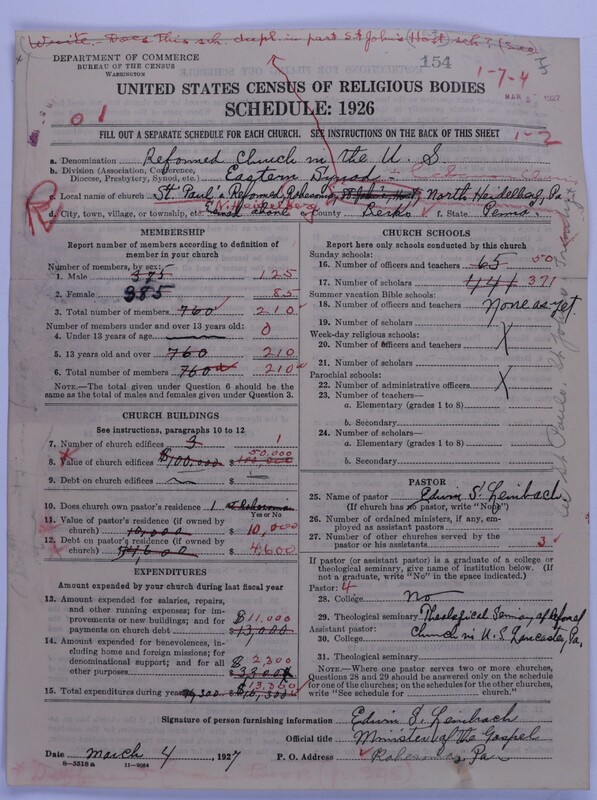 Write. Does this sch. dupl. in part St. John's (Host) sch?
DEPARTMENT OF COMMERCE
BUREAU OF THE CENSUS
WASHINGTON
154
1-7-4
UNITED STATES CENSUS OF RELIGIOUS BODIES
SCHEDULE: 1926
01
FILL OUT A SEPARATE SCHEDULE FOR EACH CHURCH. SEE INSTRUCTIONS ON THE BACK OF THIS SHEET
1-2
a. Denomination Reformed Church in the U. S.
b. Division (Association, Conference,
Diocese, Presbytery, Synod, etc.) Eastern Synod
c. Local name of church St. Paul's Reformed Robesonia, St. John's, Host, North Heidelberg, Pa
R
d. City, town, village, or township, etc. N. Heidelberg e. County Berks f. State Penna.
MEMBERSHIP
Report number of members according to definition of
member in your church
Number of members, by sex:
1. Male 375 125
2. Female 385 85
3. Total number of members 760 210
Number of members under and over 13 years old:
4. Under 13 years of age 0
5. 13 years old and over 760 210
6. Total number of members 760 210
NOTE.—The total given under Question 6 should be the
same as the total of males and females given under Question 3.
CHURCH BUILDINGS
See instructions, paragraphs 10 to 12
7. Number of church edifices 3 1
8. Value of church edifices $100,000 $ 50,000
9. Debt on church edifices $
10. Does church own pastor's residence 1 at Robesonia
Yes or No
11. Value of pastor's residence (if owned by
church) 10,000 $ 10,000
12. Debt on pastor's residence (if owned by
church) $4,600 $ 4,600
EXPENDITURES
Amount expended by your church during last fiscal year
13. Amount expended for salaries, repairs,
and other running expenses; for im-
provements or new buildings; and for
payments on church debt $11,000 13,000
14. Amount expended for benevolences, in-
cluding home and foreign missions; for
denominational support; and for all
other purposes $2,300 3300
15. Total expenditures during year 16,300 $ 13,300
CHURCH SCHOOLS
Report here only schools conducted by this church
Sunday schools:
16. Number of officers and teachers 65 50
17. Number of scholars 441 371
Summer vacation Bible schools:
18. Number of officers and teachers None as yet
19. Number of scholars
Week-day religious schools:
20. Number of officers and teachers
21. Number of scholars
Parochial schools:
22. Number of administrative officers
23. Number of teachers—
a. Elementary (grades 1 to 8)
b. Secondary
24. Number of scholars—
a. Elementary (grades 1 to 8)
b. Secondary
PASTOR
25. Name of pastor Edwin S. Leinbach
(If church has no pastor, write "No")
26. Number of ordained ministers, if any, em-
ployed as assistant pastors
27. Number of other churches served by the
pastor or his assistants 3
If pastor (or assistant pastor) is a graduate of a college or
theological seminary, give name of institution below. (If
not a graduate, write "No" in the space indicated.)
Pastor: 4
28. College No
29. Theological seminary Theological Seminary of Reformed
Assistant pastor: Church in U. S. Lancaster, Pa.
30. College
31. Theological seminary
NOTE.—Where one pastor serves two or more churches,
Questions 28 and 29 should be answered only on the schedule
for one of the churches; on the schedules for the other churches,
write "See schedule for church."
Signature of person furnishing information Edwin S. Leinbach
Official title Minister of the Gospel
Date March 4, 1927 P. O. Address Robesonia, Pa
8-5518 a 11-9064